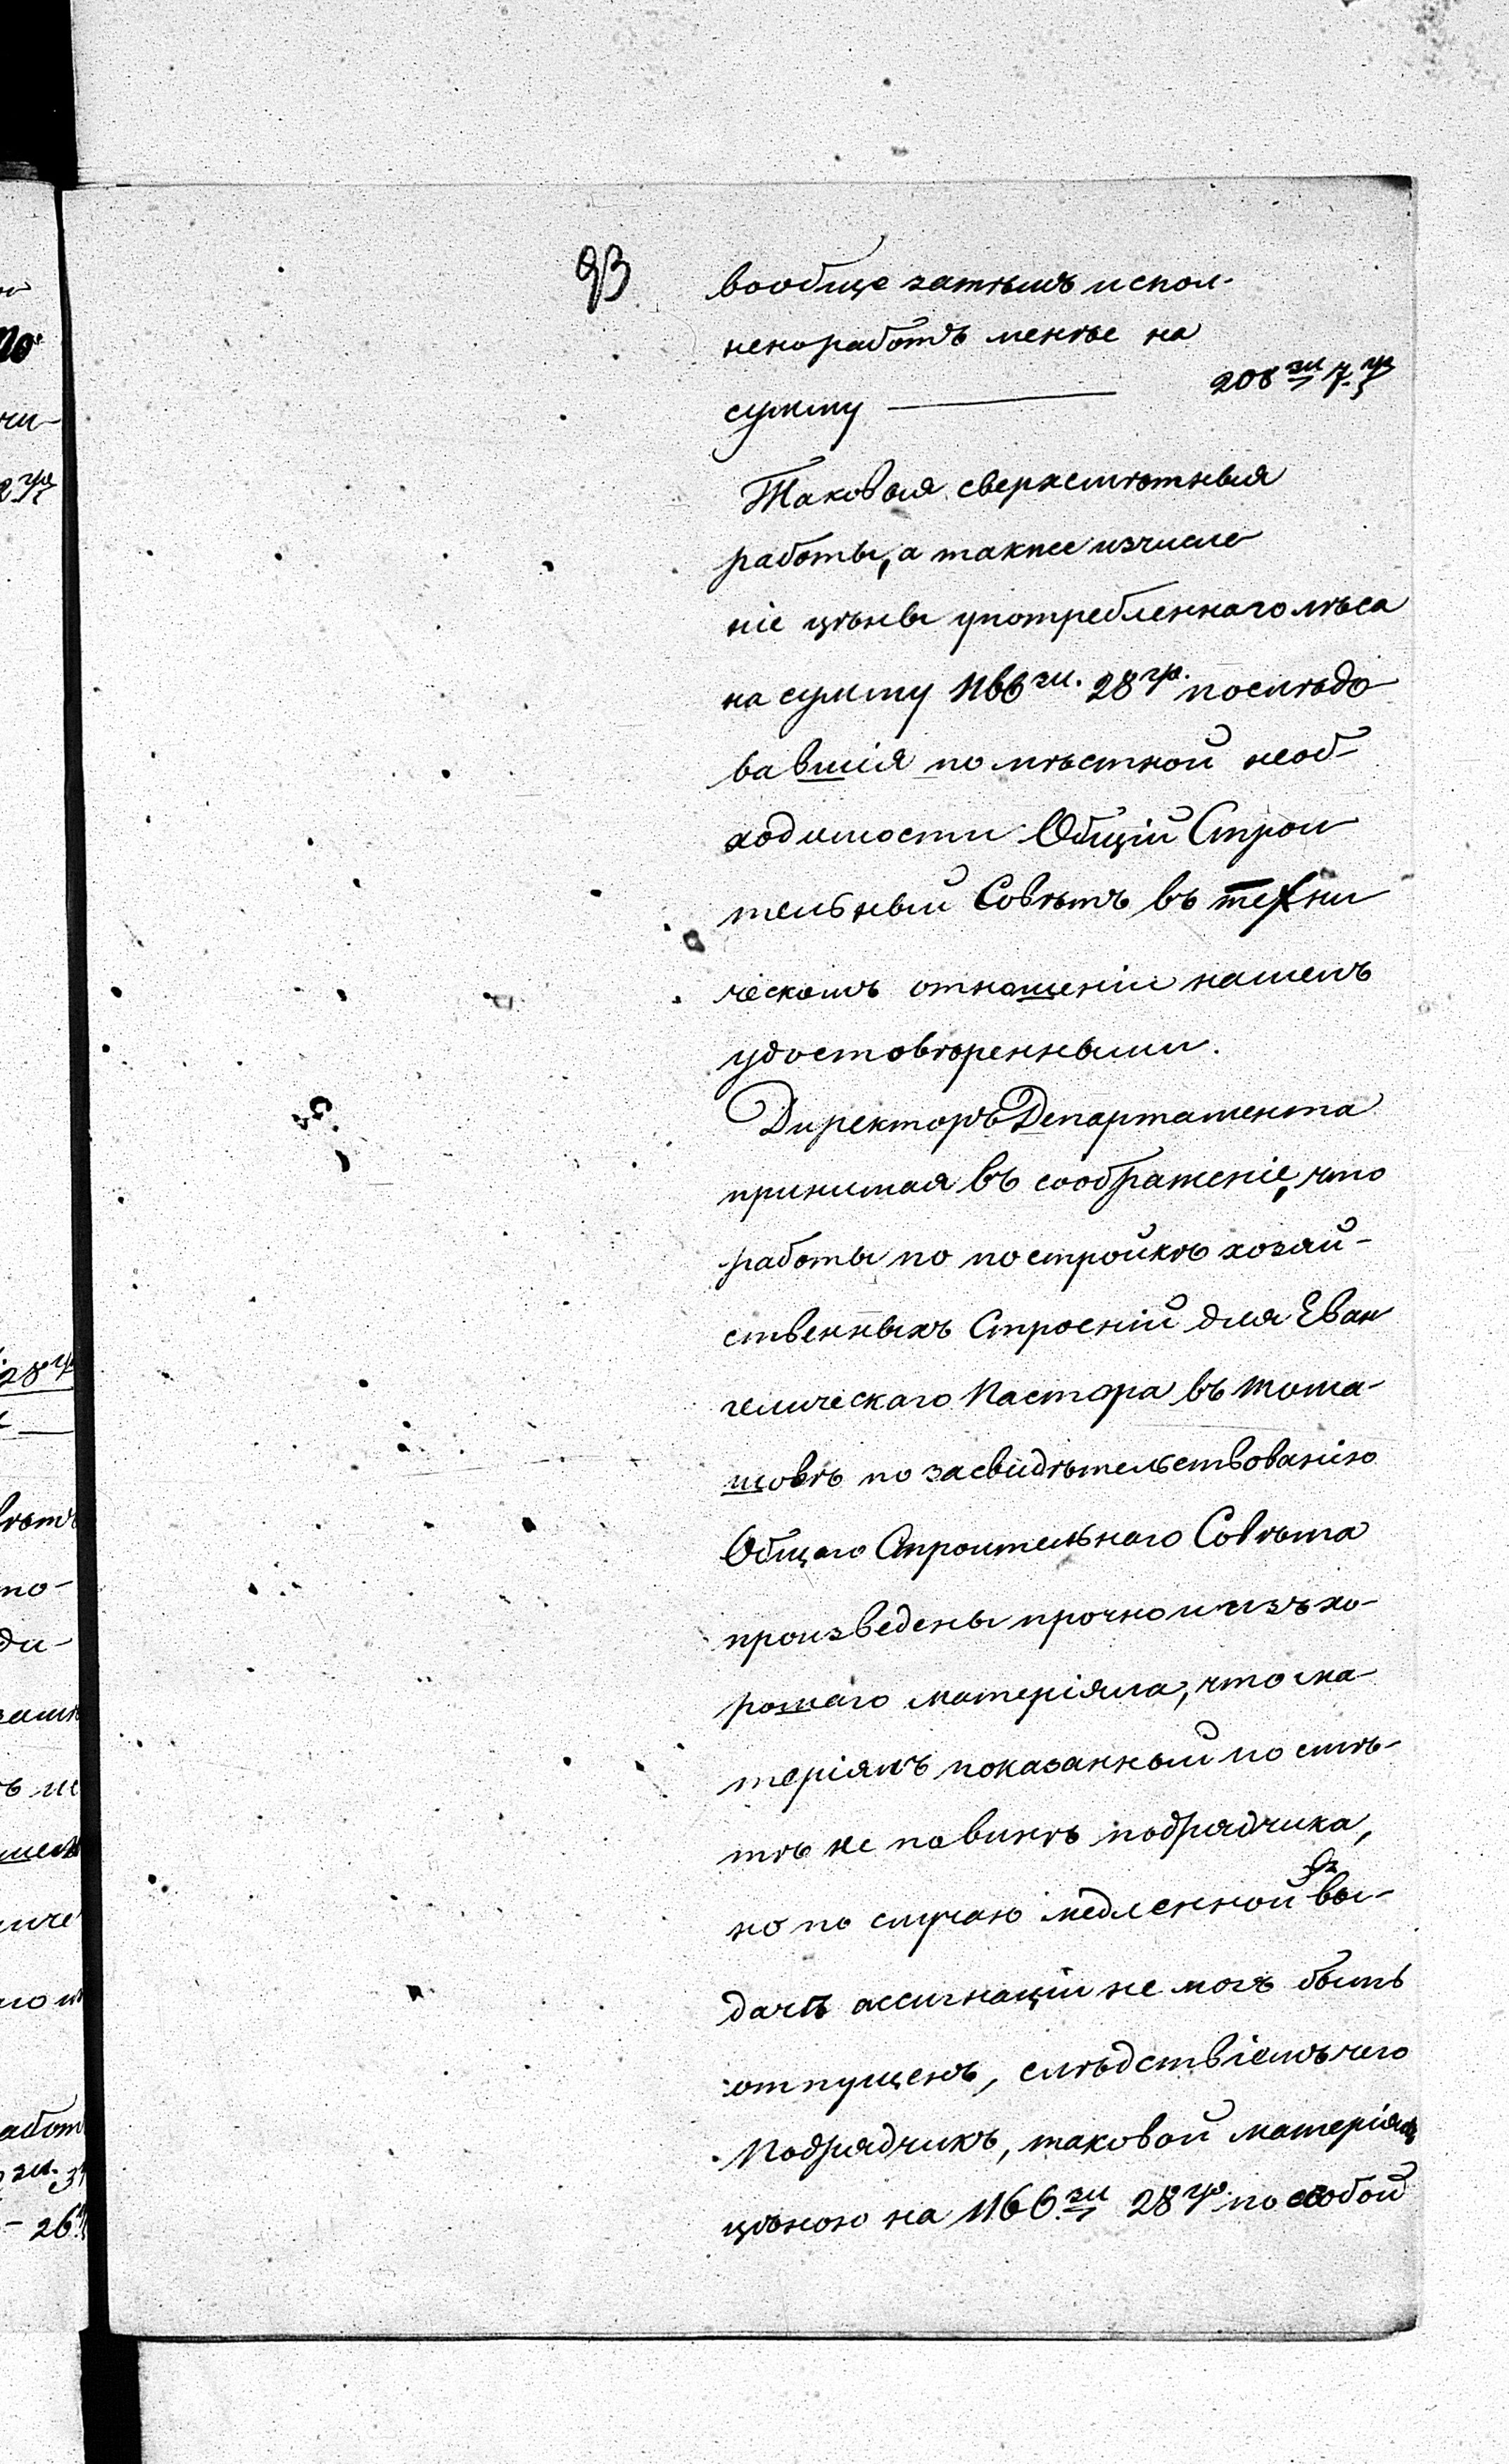 93
вообще затѣмъ испол-
нено работъ менѣе на
сумму — 208 зл 7 гр
Таковыя сверхсмѣтныя
работы, а также изчисле
ніе цѣны употребленнаго лѣса
на сумму 1166 зл. 28 гр. послѣдо
вавшія по мѣстной необ-
ходимости Общій Строи
тельный Совѣтъ въ техни
ческомъ отношеніи нашелъ
удостовѣренными.
Директоръ Департамента
принимая въ соображеніе, что
работы по постройкѣ хозяй-
ственныхъ Строеній для Еван
гелическаго Пастора въ Тома-
шовѣ по засвидѣтельствованію
Общаго Строительнаго Совѣта
произведены прочно и изъ хо-
рошаго матеріяла, что ма-
теріялъ показанный по смѣ-
тѣ не по винѣ подрядчика,
но по случаю медленной вы-
дачѣ ассигнаціи не могъ быть
отпущенъ, слѣдствіемъ чего
Подрядчикъ, таковой матеріялъ
цѣною на 1166 зл 28 гр. по особой